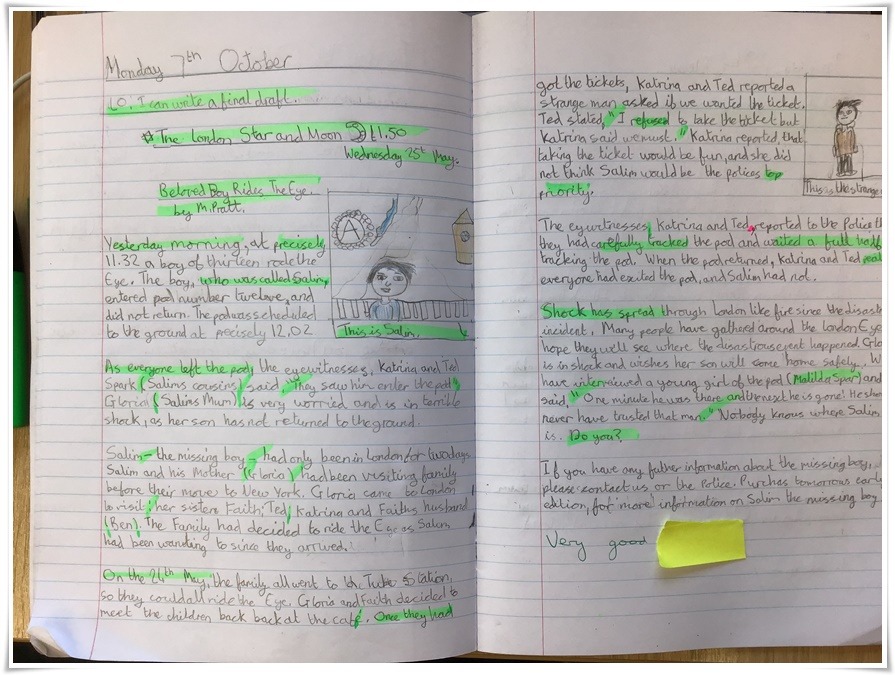 Monday 7th October
LO: I can write a final draft.
The London Star and Moon £1.50
Wednesday 25th May.
Beloved Boy Rides The Eye.
by M.Pratt.
Yesterday morning, at precisely
11.32 a boy of thirteen rode the
Eye. The boy, who was called Salim,
entered pod number twelove, and
did not return. The pod was scheduled
to the ground at precisely 12.02
This is Salim.
As everyone left the pod, the eyewitnesses, Katrina and Ted
Spark (Salims cousins) said, "They saw him enter the pod"
Gloria (Salims Mum) is very worried and is in terrible
shock, as her son has not returned to the ground.
Salim - the missing boy - had only been in London for two days.
Salim and his Mother (Gloria) had been visiting family
before their move to New York. Gloria came to London
to visit; her sister Faith; Ted; Katrina and Faiths husband
(Ben). The Family had decided to ride the Eye as Salim
had been wanting to since they arrived.
On the 24th May, the family all went to the Tube Station,
so they could all ride the Eye. Gloria and Faith decided to
meet the children back back at the café. Once they had
got the tickets, Katrina and Ted reported a
strange man asked if we wanted the ticket.
Ted stated, "I refused to take the ticket but
Katrina said we must." Katrina reported, that
taking the ticket would be fun, and she did
not think Salim would be the polices top
priority.
This is the strange
The eyewitnesses, Katrina and Ted, reported to the Police th
they had carefully tracked the pod and waited a full half
tracking the pod. When the pod returned, Katrina and Ted real
everyone had exited the pod, and Salim had not.
Shock has spread through London like fire since the disast
incident. Many people have gathered around the London Eye
hope they will see where the disastrous event happened. Glo
is in shock and wishes her son will come home safely. W
have interviewed a young girl of the pod (Matilda Spar) and
said, "One minute he was there and the next he is gone! He shou
never have trusted that man." Nobody knows where Salim
is. Do you?
If you have any futher information about the missing boy,
please contact us or the Police. Purchas tomorows early
edition, for more information on Salim the missing boy
Very good